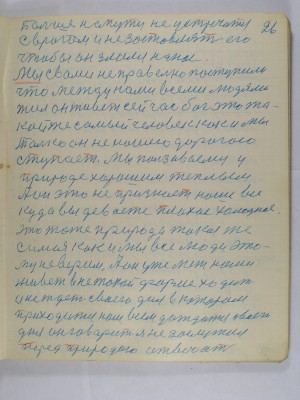 26
Больше н смути не устречати
с врагом и незаставлят его
чтобы он злом нанас.
Мы свами не правелно поступили
что между нами всеми людями
жил он живет сей час бог это та-
кой же самый человек как и мы
Только он не нашею дорогою
ступает. Мы показываем у
природе хорошим теплом
Аон это не признает наше все
куда вы деваете плохое холодное.
Это тоже природа такая же
самая как и мы все люди это-
му неверим, Аон уже мет наши
живет в нетокой форме ходит
и не ждет своего дня в котором
приходится нам всем дождатся своего
дня он говорит я не заслужил
перед природою отвечат